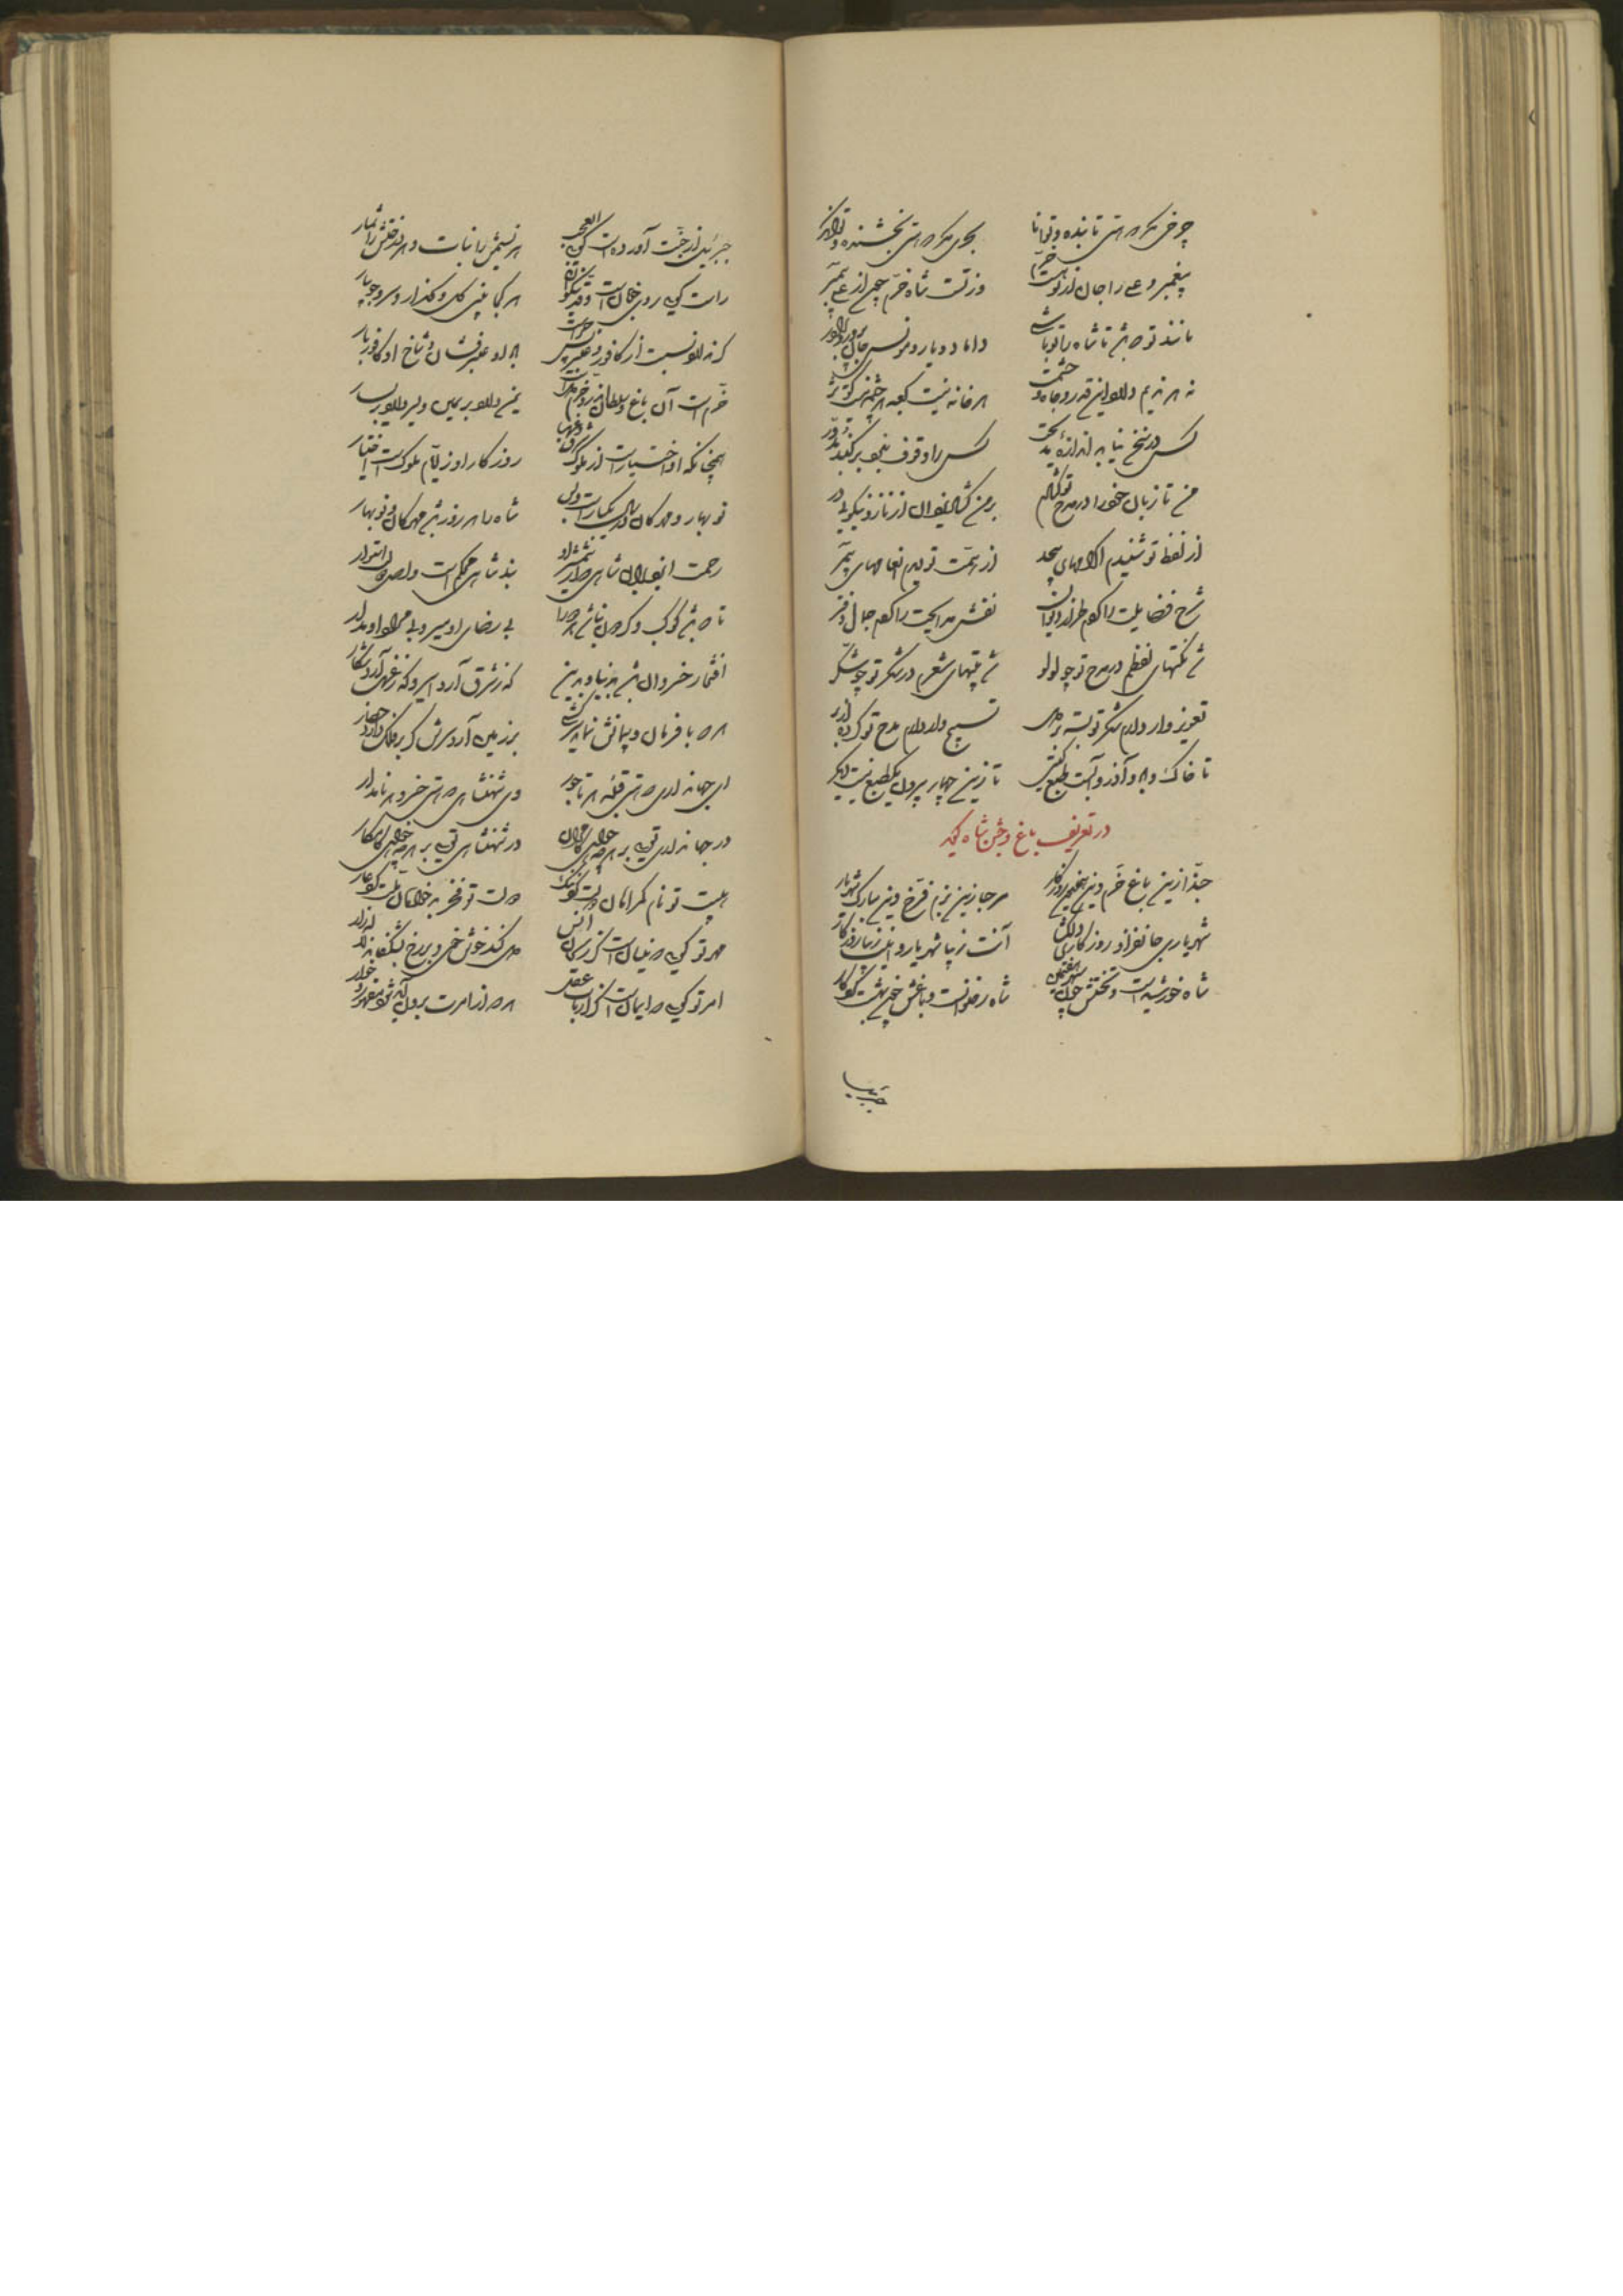 چرخی نکرده‌ای تابنده و توانا بحری نکرده‌ای بخشنده و توانگر
پیغمبر و علی را جان از تو هست خرم وز تست شاه خرم چون از علی پیمبر
مانند تو که باشد تا شاه را تو باشی داماد و یار و مونس
نه هر ندیم دارد این قدر و جاه و حشمت هر خانه نیست کعبه هر چشمه نیست کوثر
کس در سخن نیابد اندازهٔ مدیحت کس را وقوف نبود بر گنبد مدور
من تا زبان خود را در مدح تو گشادم بر من گشاد یزدان از ناز و نیکوئی در
از لفظ تو شنیدم اکرامهای بیحد از همت تو دیدم انعامهای بیمر
شرح فضایلت را کردم طراز دیوان نقش مدایحت را کردم جمال دفتر
شد نکتهای لفظم در مدح تو چو لولو شد بیتهای شعرم در شکر تو چو شکر
تعویذ وار دارم شکر تو بسته بر دل تسبیح وار دارم مدح تو کرده از بر
تا خاک و باد و آذر و آبست طبع گیتی تا زین چهار بیرون یک طبع نیست دیگر
در تعریف باغ و جشن شاه گوید
حبذا زین باغ خرم وین همایون روزگار مرحبا زین بزم فرخ وین مبارک شهریار
شهریاری جانفزا و روزگاری دلگشا آنت زیبا شهریار و اینت زیبا روزگار
شاه خورشید است و تختش چون سپهر هفتمین شاه رضوانست و باغش چون بهشت کردگار
جبرئیل
جبرئیل از جنت آورده است گوئی ای عجب هر نسیمش را نبات و هر درختش را شمار
راست گوئی روی خوبان است و قد نیکوان هر کجا بینی گل و گلزار و سرو جویبار
گر نه او نسبت از کافور و عنبر پس چراست باد او عنبر فشان و شاخ او کافوربار
خرم است آن باغ و سلطان نیز خرم یمن دارد بر یمین و یسر دارد بر یسار
همچنانکه او اختیار است از ملوک شرق و غرب روزگار او ز ایام ملوکست اختیار
نوبهار و مهرگان در سال یکبار است و بس شاه را هر روز باشد مهرگان و نوبهار
رحمت ایزد بر آن شاهی که از شمشیر او بند شاهی محکم است و اصل دین استوار
تا که باشد کوکب و گردون نباشد هر دو را بی رضای او مسیر و بی مراد او مدار
افتخار خسروان باشد به بنیاد و به بین که ز شرق آرد اسیر و که ز غرب آرد شکار
هر که با فرمان و پیمانش نماید سرکشی بر زمین آرد سرش گر بر فلک دارد حصار
ای جهانداری که هستی قبلهٔ هر تاجور وی شهنشاهی که هستی خسرو هر نامدار
در جهانداری توئی بر هر چه خواهی کامران در شهنشاهی توئی بر هر چه خواهی کامکار
هیبت تو نام گمراهان دولت کرد ننگ دولت تو فخر بدخواهان ملت کرد عار
مهر تو گوئی که دنیا است کز وی انس می کند خوش خوی و بر رخ بشکفاند لاله‌زار
امر تو گوئی که ایمان است کز ارباب عقل هر که از امرت برون آید شود مقهور و خوار